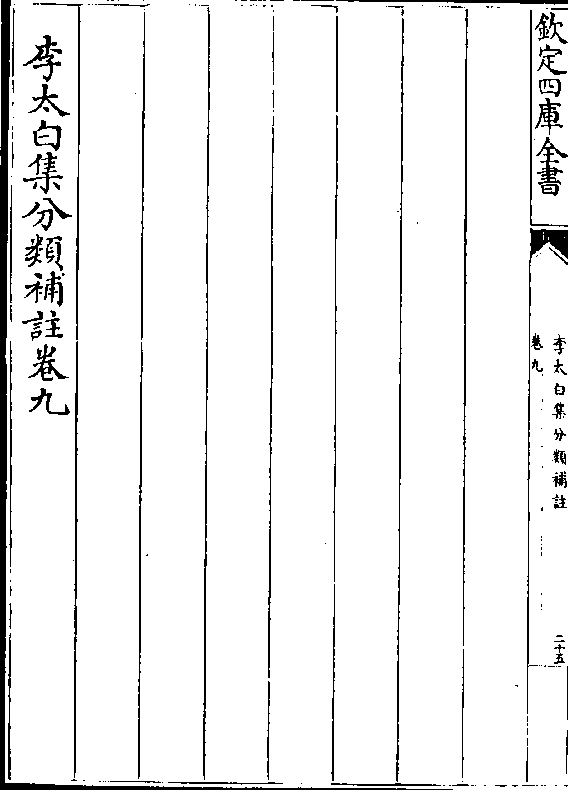 欽定四庫全書
李太白集分類補註
卷九
二十五
李太白集分類補註卷九